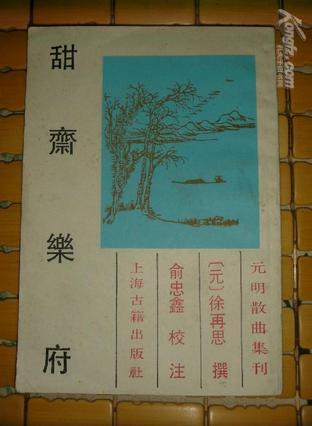 甜齋樂府
元明散曲集刊
〔元〕徐再思 撰
俞忠鑫 校注
上海古籍出版社
Kongfz.com